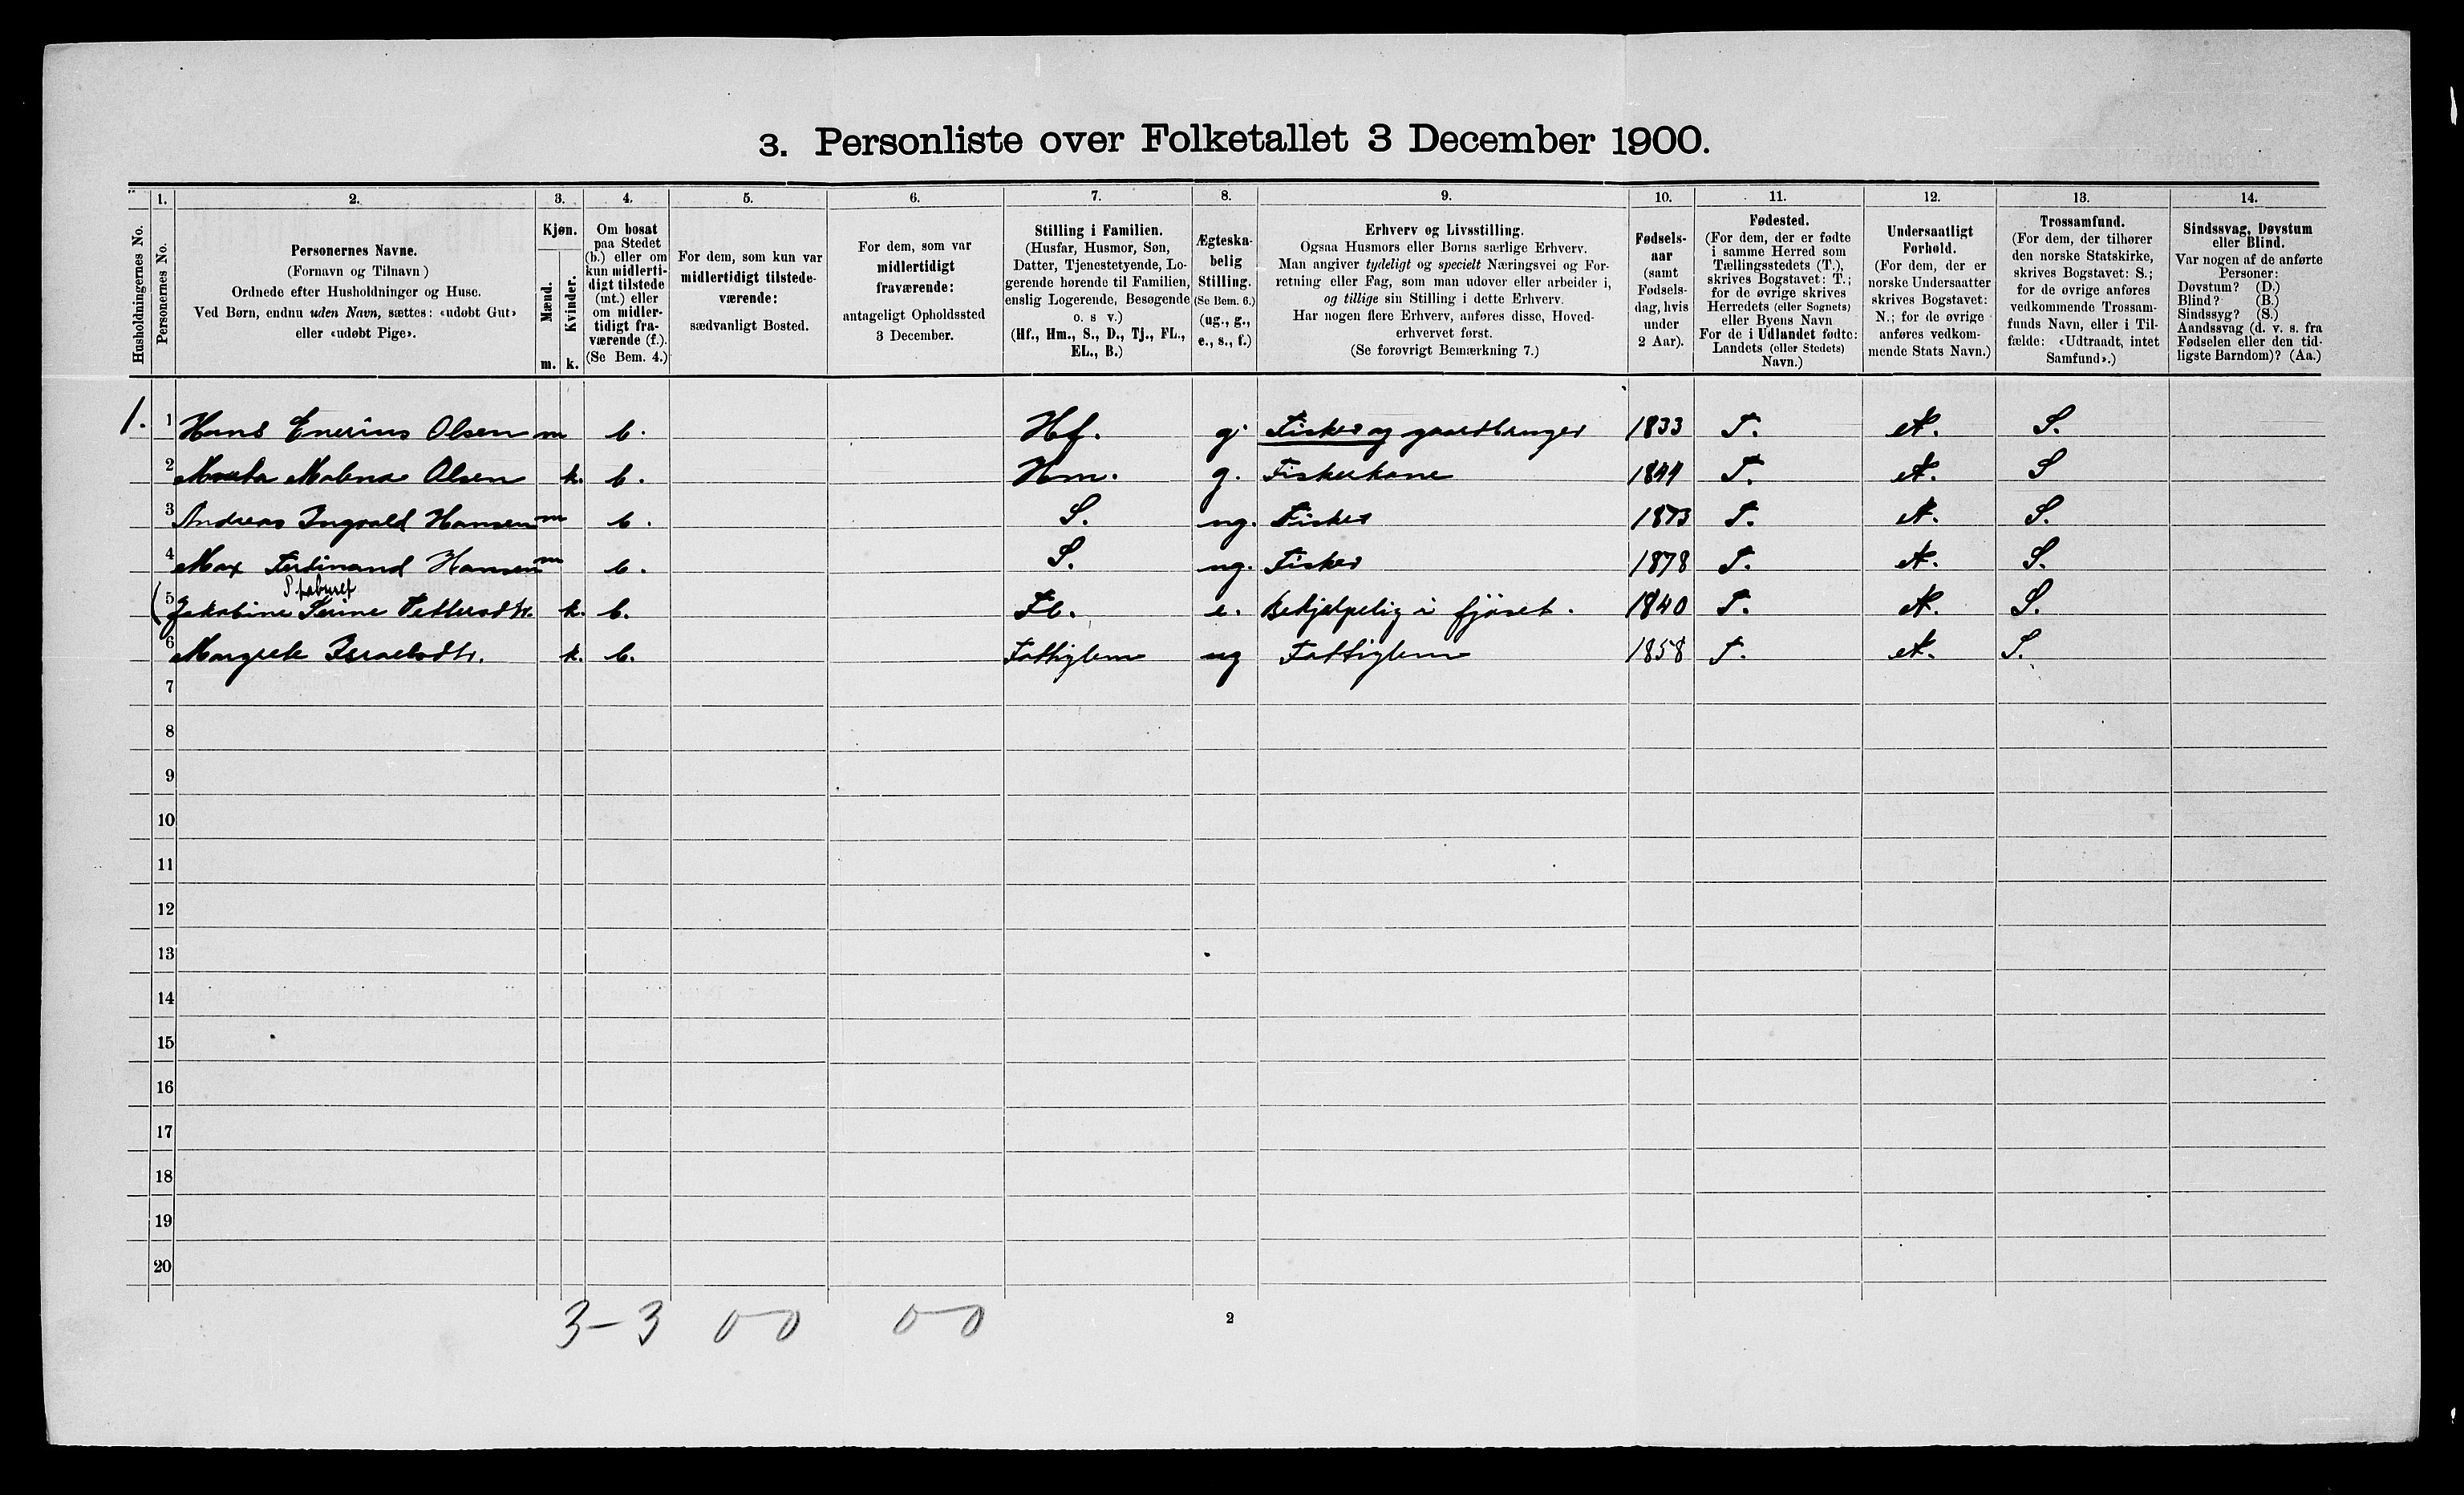 3. Personliste over Folketallet 3 December 1900.
1. 2. 3. 4. 5. 6. 7. 8. 9. 10. 11. 12. 13. 14.
Husholdningernes No.
Personernes No.
Personernes Navne.
(Fornavn og Tilnavn)
Ordnede efter Husholdninger og Huse.
Ved Børn, endnu uden Navn, sættes: «udøbt Gut»
eller «udøbt Pige».
Kjøn.
Mænd.
Kvinder.
m. k.
Om bosat
paa Stedet
(b.) eller om
kun midlerti-
digt tilstede
(mt.) eller
om midler-
tidigt fra-
værende (f.).
(Se Bem. 4.)
For dem, som kun var
midlertidigt tilstede-
værende:
sædvanligt Bosted.
For dem, som var
midlertidigt
fraværende:
antageligt Opholdssted
3 December.
Stilling i Familien.
(Husfar, Husmor, Søn,
Datter, Tjenestetyende, Lo-
gerende hørende til Familien,
enslig Logerende, Besøgende
o. s v.)
(Hf., Hm., S., D., Tj., FL.,
EL., B.)
Ægteska-
belig
Stilling.
(Se Bem. 6.)
(ug., g.,
e., s., f.)
Erhverv og Livsstilling.
Ogsaa Husmors eller Børns særlige Erhverv.
Man angiver tydeligt og specielt Næringsvei og For-
retning eller Fag, som man udøver eller arbeider i,
og tillige sin Stilling i dette Erhverv.
Har nogen flere Erhverv, anføres disse, Hoved-
erhvervet først.
(Se forøvrigt Bemærkning 7.)
Fødsels-
aar
(samt
Fødsels-
dag, hvis
under
2 Aar).
Fødested.
(For dem, der er fødte
i samme Herred som
Tællingsstedets (T.),
skrives Bogstavet: T.;
for de øvrige skrives
Herredets (eller Sognets)
eller Byens Navn
For de i Udlandet fødte:
Landets (eller Stedets)
Navn.)
Undersaatligt
Forhold.
(For dem, der er
norske Undersaatter
skrives Bogstavet:
N.; for de øvrige
anføres vedkom-
mende Stats Navn.)
Trossamfund.
(For dem, der tilhører
den norske Statskirke,
skrives Bogstavet: S.;
for de øvrige anføres
vedkommende Trossam-
funds Navn, eller i Til-
fælde: «Udtraadt, intet
Samfund».)
Sindssvag, Døvstum
eller Blind.
Var nogen af de anførte
Personer:
Døvstum? (D.)
Blind? (B.)
Sindssyg? (S.)
Aandssvag (d. v. s. fra
Fødselen eller den tid-
ligste Barndom)? (Aa.)
1. 1 Hans Enerius Olsen m b. Hf. g. Fisker og gaardbruger 1833 T. N. S.
2 Malena Olsen k. b. Hm. g. Fiskerkone 1844 T. N. S
3 Andreas Ingvald Hansen m b. S. ug. Fisker 1873 T. N. S.
4 Max Ferdinand Hansen m b. S. ug. Fisker 1878 T. N. S.
(5 Jakobine Serine Pettersdtr. k. b. FL. e. Behjelpelig i fjöset. 1840 T. N. S.
6 Margrete Israelsdtr. k. b. Fattiglem ug Fattiglem 1858 T. N. S.
7
8
9
10
11
12
13
14
15
16
17
18
19
20
3-3 0-0 0-0 2